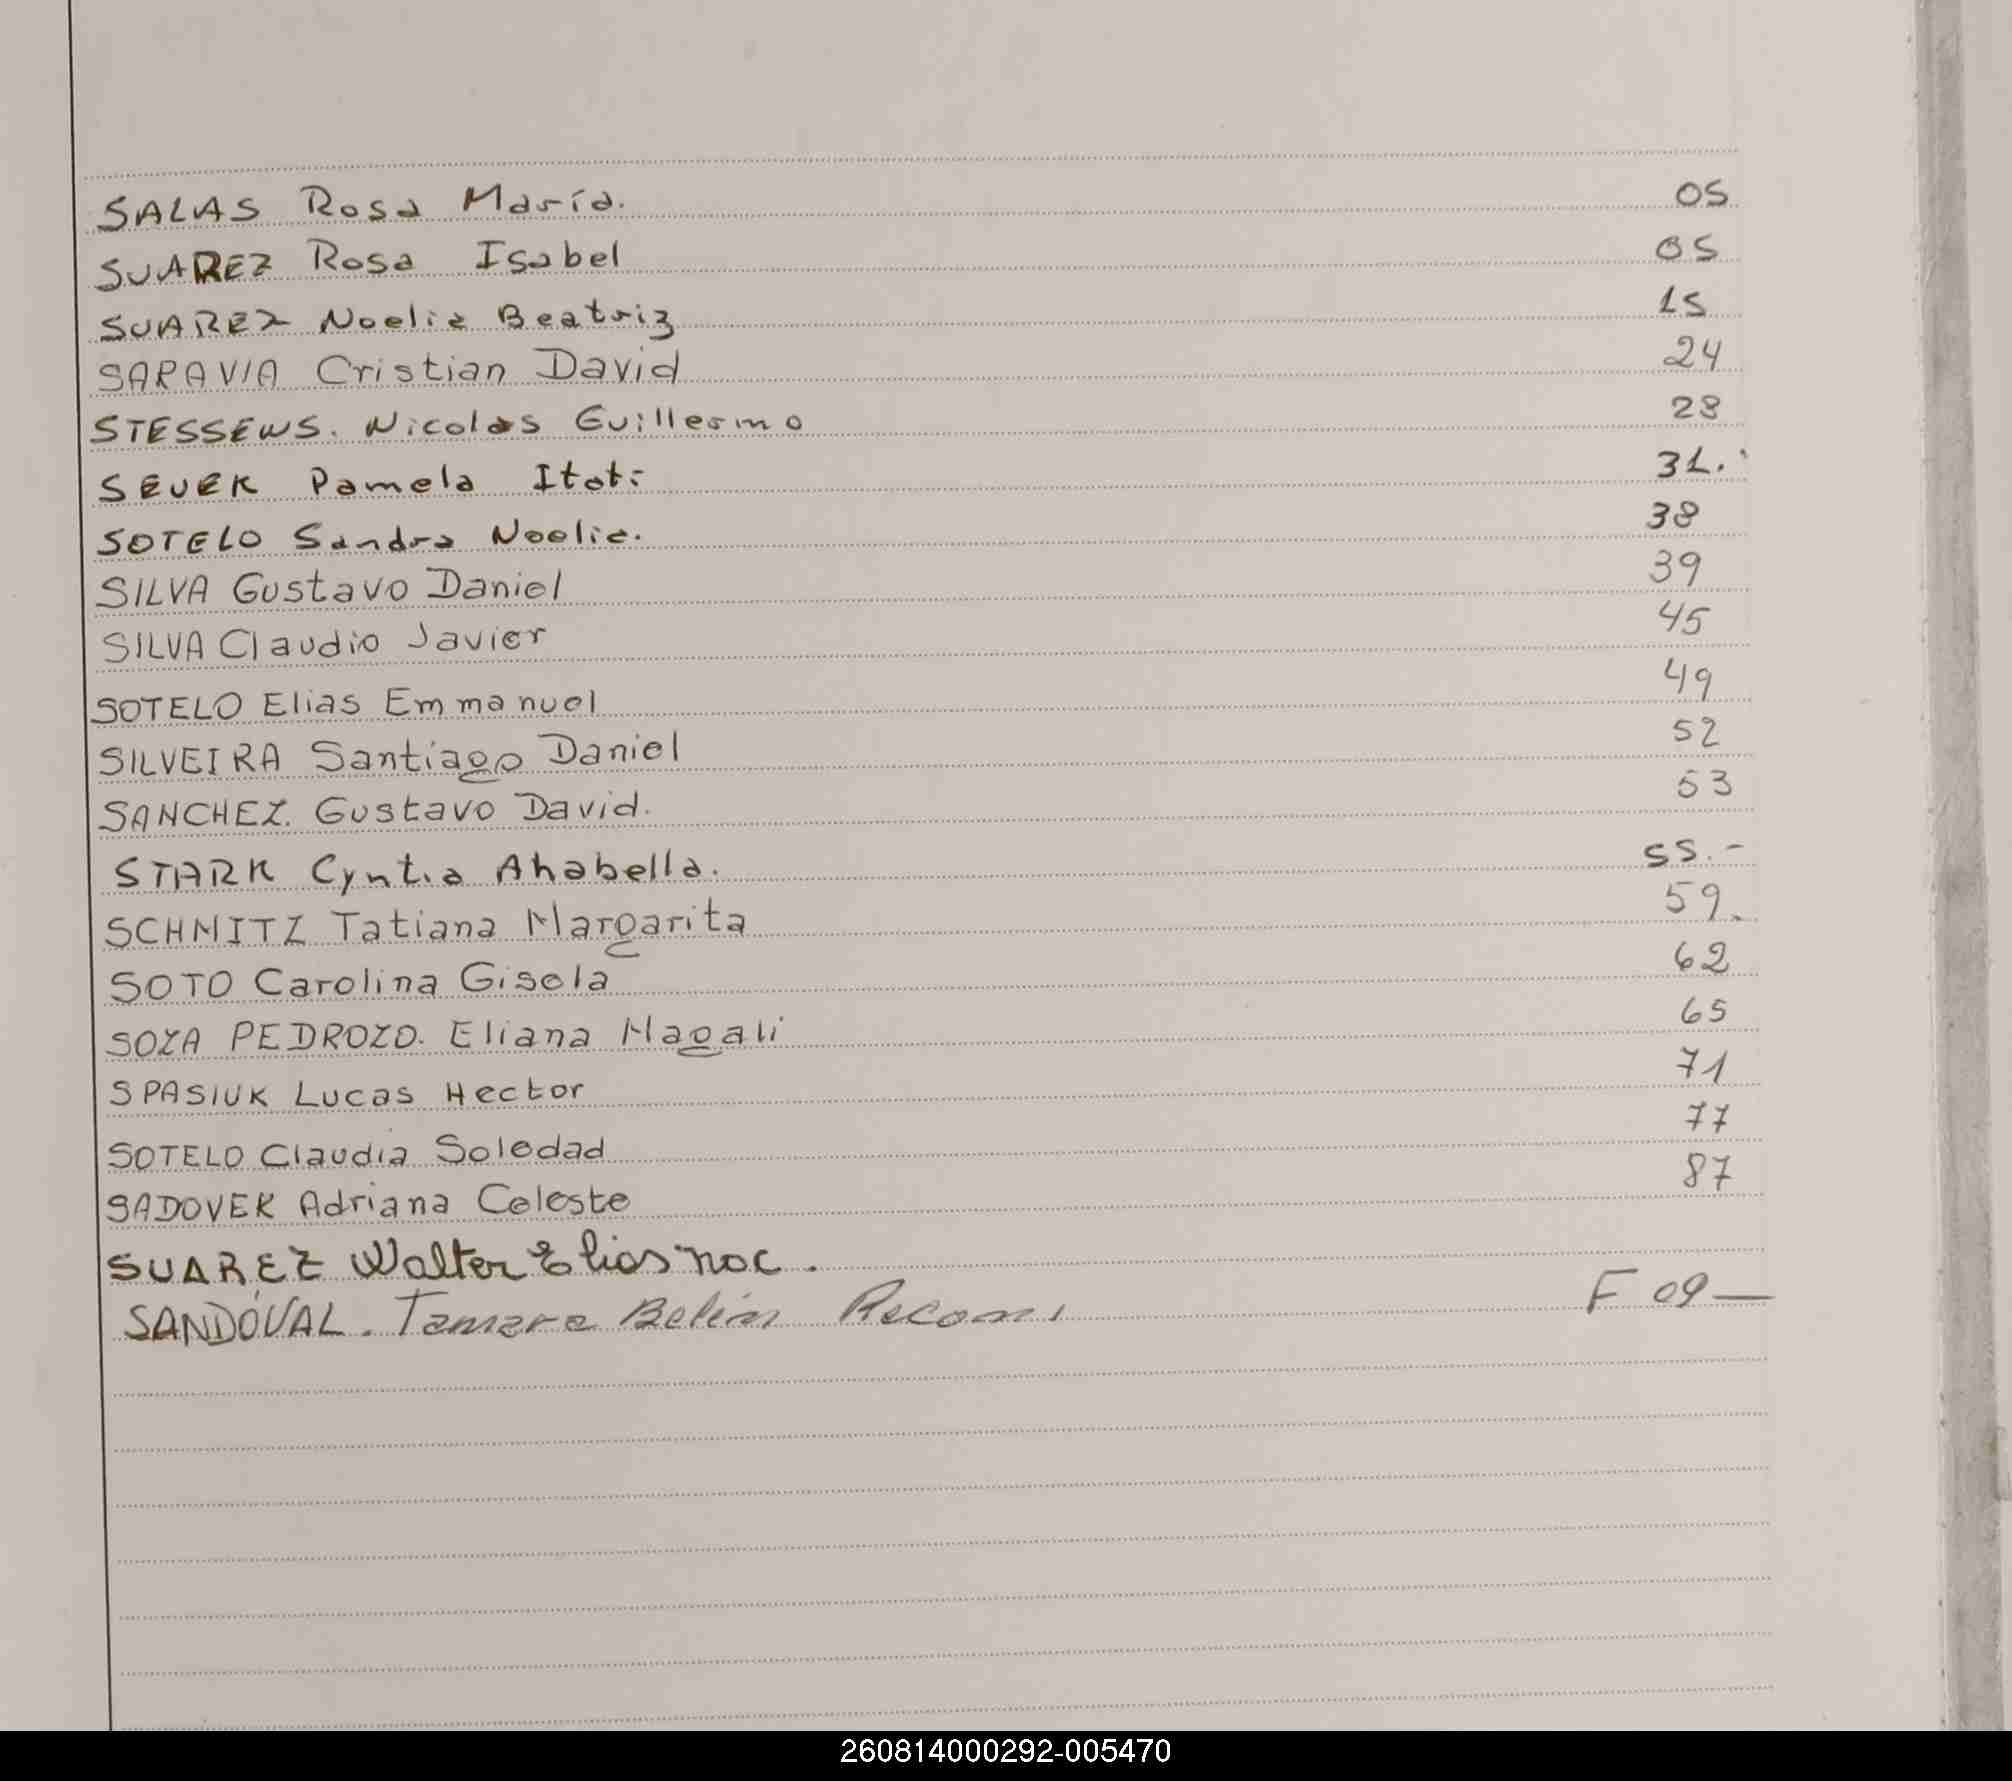 SALAS Rosa María. 05
SUAREZ Rosa Isabel 05
SUAREZ Noelia Beatriz 15
SARAVIA Cristian David 24
STESSEWS. Nicolas Guillermo 28
SEVEK Pamela Itatí 31.
SOTELO Sandra Noelia. 38
SILVA Gustavo Daniel 39
SILVA Claudio Javier 45
SOTELO Elias Emmanuel 49
SILVEIRA Santiago Daniel 52
SANCHEZ. Gustavo David. 53
STARK Cyntia Anabella. 55.-
SCHMITZ Tatiana Margarita 59.
SOTO Carolina Gisela 62
SOZA PEDROZO. Eliana Magali 65
SPASIUK Lucas Hector 71
SOTELO Claudia Soledad 77
SADOVEK Adriana Celeste 87
SUAREZ Walter Elias noc.
SANDOVAL. Tamara Belén Recon. F 09—
260814000292-005470